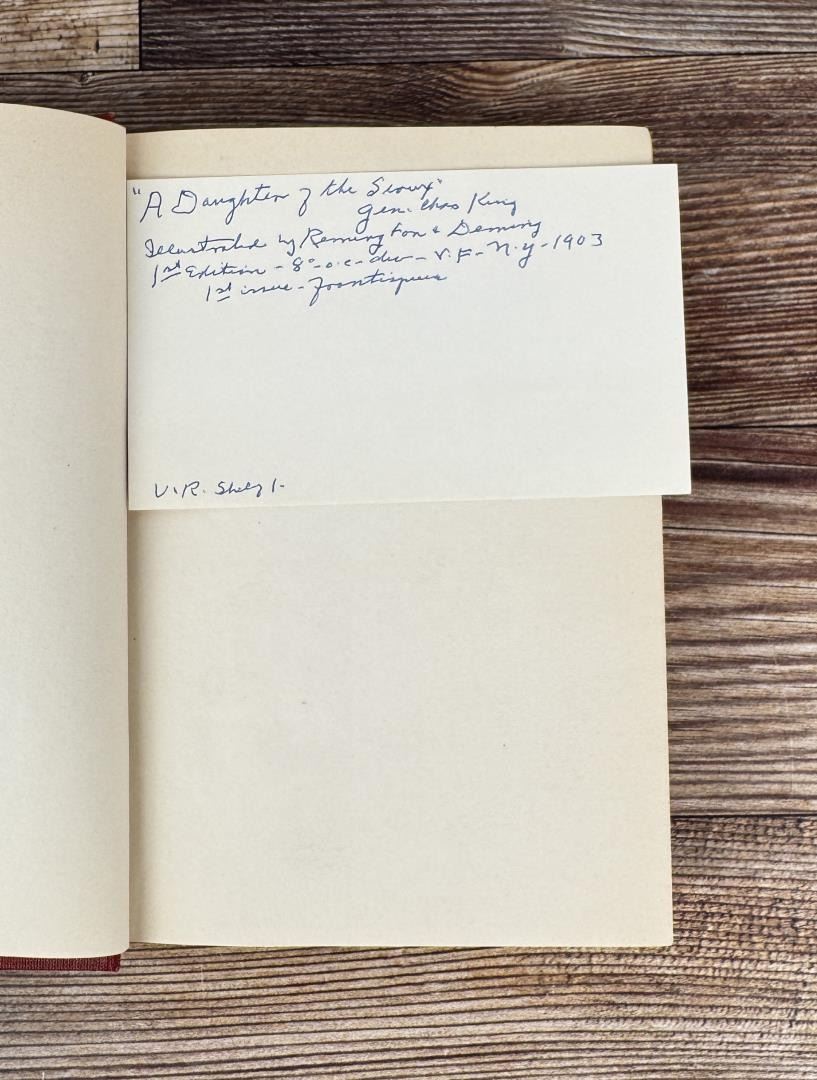 "A Daughter of the Sioux"
Gen. Chas King
Illustrated by Remington & Deming
1st Edition - 8° - o.c. - dec - V.F - N.Y - 1903
1st issue - Frontispiece
V.R. Shelf 1-